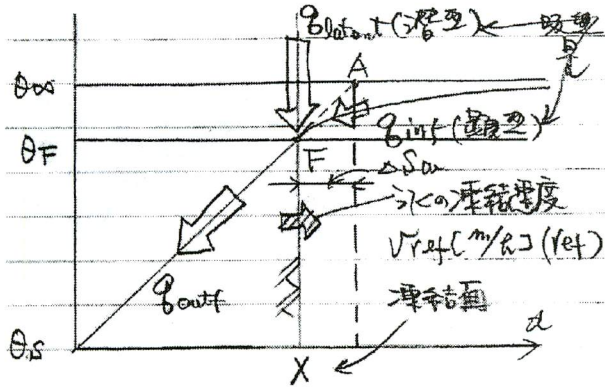 qlatent (潜熱)
θ∞
A
θF
qinf (顕熱)
F
ΔSw
氷の凍結速度
Vref [m/h] (Vef)
qoutf
凍結面
θs
X
x